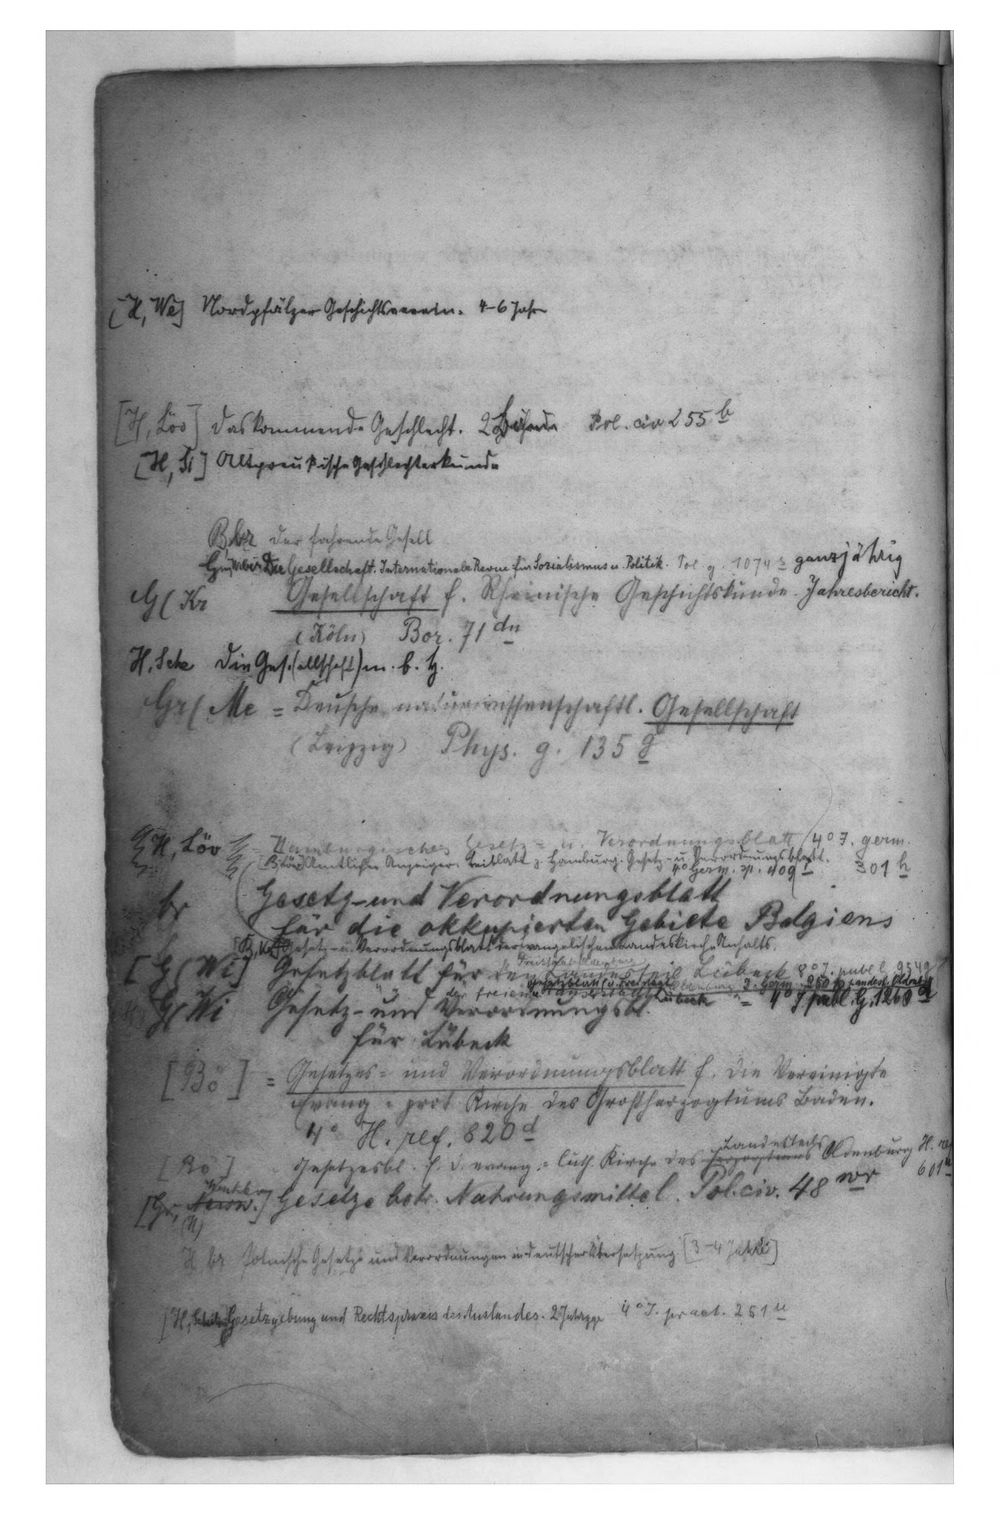 [H, We] Nordpfälzer Geschichtsverein. 4-6 Jahre
[H, Löv] Das kommende Geschlecht. 2 Bände Pol. civ 255 b
[H, Si] Altpreußische Geschlechterkunde
Br Der fahrende Gesell
Die Gesellschaft. Internationale Revue für Sozialismus u. Politik. Pol g. 1074 ganzjährig
G( Kr Gesellschaft f. Rheinische Geschichtskunde. Jahresbericht.
(Köln) Bor. 71 dn
H, Sch Die Ges.(ellschaft) m. b. H.
Gr( Me = Deutsche naturwissenschaftl. Gesellschaft
(Leipzig) Phys. g. 135 g
H, Löv = Hamburgisches Gesetz- u. Verordnungsblatt 4° J. germ.
Amtlicher Anzeiger. Beiblatt z. Hamburg. Gesetz- u. Verordnungsblatt. 301 h
br Gesetz- und Verordnungsblatt
für die okkupierten Gebiete Belgiens
Gesetz- u. Verordnungsblatt der evangelischen Landeskirche Anhalts.
[G( Wi] Gesetzblatt für den Landesteil Lübeck
G( Wi Gesetz- und Verordnungsbl. = 4° J publ. G. 1260
für Lübeck
[Bö] = Gesetzes- und Verordnungsblatt f. die Vereinigte
Evang.-prot. Kirche des Großherzogtums Baden.
4° H. ref. 820 d
Landesteils
[Rö] Gesetzesbl. f. d. evang.-luth. Kirche des Herzogtums Oldenburg H. re
601
[Gr, ] Gesetze betr. Nahrungsmittel. Pol. civ. 48 wr
(H)
H br Polnische Gesetze und Verordnungen in deutscher Übersetzung [3-4 Jahre]
[H, Gesetzgebung und Rechtspraxis des Auslandes. 2 Jahrgge 4° J. pract. 251 u